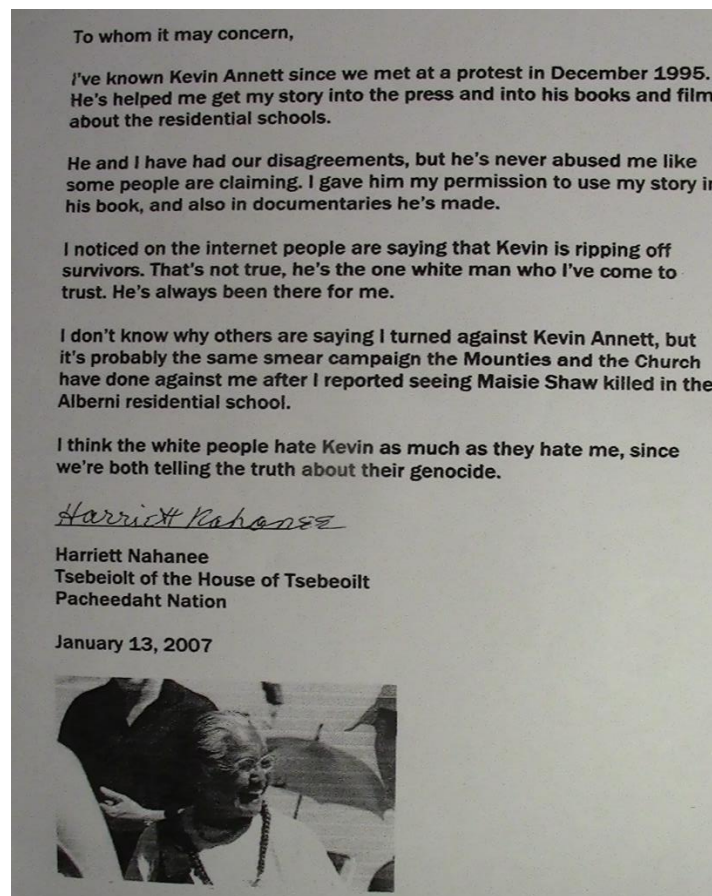 To whom it may concern,
I've known Kevin Annett since we met at a protest in December 1995.
He's helped me get my story into the press and into his books and film
about the residential schools.
He and I have had our disagreements, but he's never abused me like
some people are claiming. I gave him my permission to use my story in
his book, and also in documentaries he's made.
I noticed on the internet people are saying that Kevin is ripping off
survivors. That's not true, he's the one white man who I've come to
trust. He's always been there for me.
I don't know why others are saying I turned against Kevin Annett, but
it's probably the same smear campaign the Mounties and the Church
have done against me after I reported seeing Maisie Shaw killed in the
Alberni residential school.
I think the white people hate Kevin as much as they hate me, since
we're both telling the truth about their genocide.
Harriett Nahanee
Harriett Nahanee
Tsebeiolt of the House of Tsebeoilt
Pacheedaht Nation
January 13, 2007